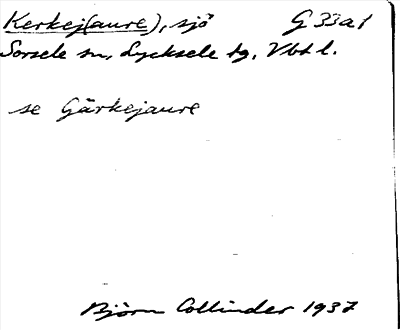 Kerkej(aure), sjö G 33a1
Sorsele sn, Lycksele tg, Vbtl.
se Gärkejaure
Björn Collinder 1937